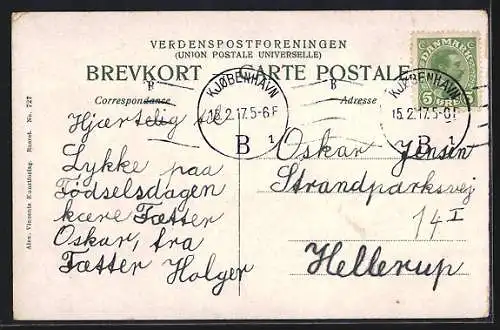 VERDENSPOSTFORENINGEN
(UNION POSTALE UNIVERSELLE)
BREVKORT — CARTE POSTALE
Correspondance
Adresse
DANMARK
5 ØRE
KJØBENHAVN
15.2.17.5-6F
B 1
B
KJØBENHAVN
15.2.17.5-6F
B 1
B
Hjærtelig til
Lykke paa
Fødselsdagen
kære Fætter
Oskar, fra
Fætter Holger
Oskar Jensen
Strandparksvej
14 I
Hellerup
Alex. Vincents Kunstforlag. Eneret. No. 727